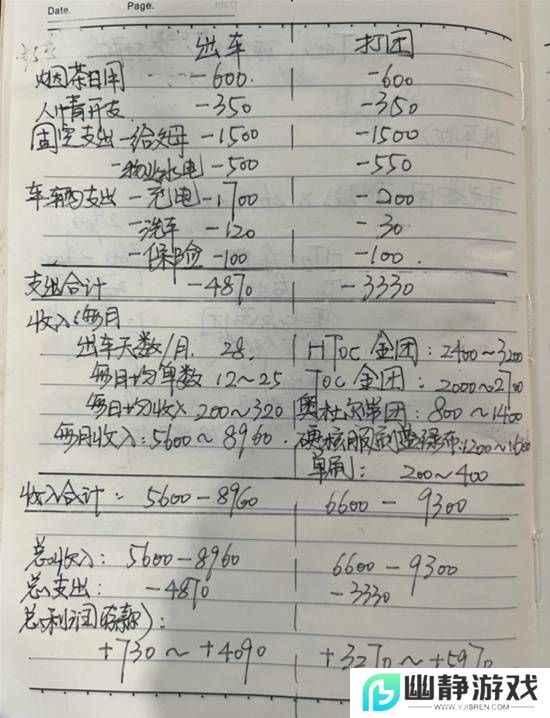 Date.  Page.
出车  打团
烟茶日用  -600.  -600
人情开支  -350  -350
固定支出-给父母  -1500  -1500
-物业水电  -500  -550
车辆支出-充电  -1700  -200
-洗车  -120  -30
-保险  -100  -100.
支出合计  -4870  -3330
收入(每月
出车天数/月. 28.  HToc 金团: 2400~3200
每日均单数 12~25  Toc 金团: 2000~2700
每日均收入 200~320  奥杜尔单团: 800~1400
每月收入: 5600~8960.  硬核服刷 1200~1600
单刷: 200~400
收入合计: 5600-8960  6600-9300
总收入: 5600-8960  6600-9300
总支出: -4870  -3330
总利润(存款):
+730~+4090  +3270~+5970
幽静游戏
WWW.YJISREN.COM